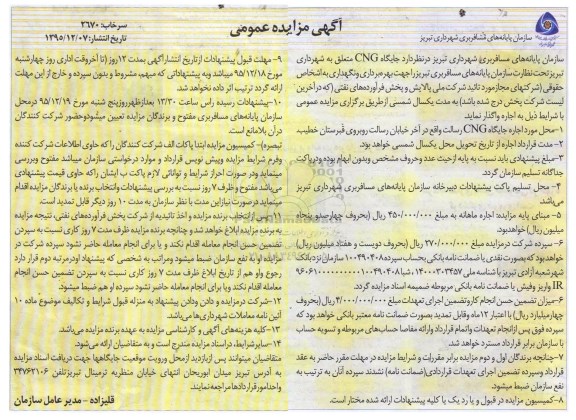 سازمان پایانه‌های مسافربری شهرداری تبریز
آگهی مزایده عمومی
سرخاب: ۲۶۷۰
تاریخ انتشار: ۱۳۹۵/۱۲/۰۷
سازمان پایانه‌های مسافربری شهرداری تبریز در نظر دارد جایگاه CNG متعلق به شهرداری
تبریز تحت نظارت سازمان پایانه‌های مسافربری تبریز را جهت بهره برداری و نگهداری به اشخاص
حقوقی (شرکتهای مجاز مورد تائید شرکت ملی پالایش و پخش فرآورده‌های نفتی (که در آخرین
لیست شرکت پخش درج شده باشد) به مدت یکسال شمسی از طریق برگزاری مزایده عمومی
با شرایط ذیل به اجاره واگذار نماید.
۱-محل مورد اجاره جایگاه CNG رسالت واقع در آخر خیابان رسالت روبروی قبرستان خطیب.
۲- مدت قرارداد اجاره از تاریخ تحویل محل یکسال شمسی خواهد بود.
۳-مبلغ پیشنهادی باید نسبت به پایه از حیث عدد و حروف مشخص و بدون ابهام بوده و در پاکت
جداگانه تسلیم سازمان گردد.
۴- محل تسلیم پاکت پیشنهادات دبیرخانه سازمان پایانه‌های مسافربری شهرداری تبریز
می‌باشد.
۵- مبنای پایه مزایده: اجاره ماهانه به مبلغ ۴۵۰/۰۰۰/۰۰۰ ریال (بحروف چهارصد و پنجاه
میلیون ریال) خواهد بود.
۶- سپرده شرکت در مزایده مبلغ ۲۷۰/۰۰۰/۰۰۰ ریال (بحروف دویست و هفتاد میلیون ریال)
خواهد بود که بصورت نقدی یا ضمانت نامه بانکی به حساب سپرده ۱۰۰۴۹۰۴۰۸ سازمان نزد بانک
شهر شعبه آزادی تبریز با شناسه ملی
IR واریز و فیش یا ضمانت نامه بانکی مربوطه ضمیمه اسناد مزایده گردد.
۶-میزان تضمین حسن انجام کار و تضمین اجرای تعهدات مبلغ ۴/۰۰۰/۰۰۰/۰۰۰ ریال (بحروف
چهار میلیارد ریال) با اعتبار ۱۲ ماه و قابل تمدید بصورت ضمانت نامه معتبر بانکی خواهد بود که
سپرده فوق پس از انجام تعهدات و اتمام قرارداد و ارائه مفاصا حسابهای مربوطه و تسویه حساب
با سازمان برابر قرارداد مسترد خواهد شد.
۷-چنانچه برندگان اول و دوم مزایده برابر مقررات و شرایط مزایده در مهلت مقرر حاضر به عقد
قرارداد و سپرده تضمین اجرای تعهدات قراردادی (ضمانت نامه) نشدند سپرده آنان به ترتیب به
نفع سازمان ضبط میشود.
۸-کمیسیون مزایده در قبول و یا رد یک یا کلیه پیشنهادات ارائه شده مختار است.
۹- مهلت قبول پیشنهادات از تاریخ انتشار آگهی بمدت ۱۲ روز (تا آخر وقت اداری روز چهارشنبه
مورخ ۹۵/۱۲/۱۸ میباشد و به پیشنهاداتی که مبهم، مشروط و بدون سپرده و خارج از این مهلت
ارائه گردد ترتیب اثر داده نخواهد شد.
۱۰-پیشنهادات رسیده راس ساعت ۱۳/۳۰ بعد از ظهر روز پنج شنبه مورخ ۹۵/۱۲/۱۹ در محل
سازمان پایانه‌های مسافربری مفتوح و برندگان مزایده تعیین میشود و حضور شرکت کنندگان
در آن بلامانع است.
تبصره)- کمیسیون مزایده ابتدا پاکات الف شرکت کنندگان را که حاوی اطلاعات شرکت کننده
و فرم شرایط مزایده و پیش نویس قرارداد و موارد درخواستی سازمان میباشد مفتوح و بررسی
مینماید و در صورت احراز شرایط و توانائی لازم پاکت ب ایشان را که حاوی قیمت پیشنهادی
می‌باشد مفتوح و ظرف ۷ روز نسبت به بررسی پیشنهادات و انتخاب برنده یا برندگان مزایده اقدام
مینماید در صورت نیاز این مدت با نظر سازمان به مدت ۱۰ روز دیگر قابل تمدید است.
۱۱-پس از انتخاب برنده مزایده و اخذ تائیدیه از شرکت پخش فرآورده‌های نفتی، نتیجه مزایده
به برنده مزایده ابلاغ خواهد شد و چنانچه برنده مزایده ظرف مدت ۷ روز کاری نسبت به سپردن
تضمین حسن انجام معامله اقدام نکند و یا برای انجام معامله حاضر نشود سپرده شرکت در
مزایده او به نفع سازمان ضبط میشود و مراتب به شخصی که پیشنهاد او در مرتبه دوم قرار دارد
رجوع و او هم از تاریخ ابلاغ ظرف مدت ۷ روز کاری نسبت به سپردن تضمین حسن انجام
معامله اقدام نکند و یا برای انجام معامله حاضر نشود سپرده او هم ضبط میشود.
۱۲-شرکت در مزایده و دادن پیشنهاد به منزله قبول شرایط و تکالیف موضوع ماده ۱۰
آئین نامه معاملات شهرداری‌ها می‌باشد.
۱۳-کلیه هزینه‌های آگهی و کارشناسی مزایده به عهده برنده مزایده می‌باشد.
۱۴-سایر شرایط، در اسناد مزایده مندرج است و به متقاضیان ارائه می‌شود.
متقاضیان میتوانند پس از بازدید از محل و رویت موقعیت جایگاهها جهت دریافت اسناد مزایده
به آدرس تبریز میدان ابوریحان انتهای خیابان منظریه ترمینال تبریز تلفن ۳۴۷۶۲۱۰۶
واحد امور قراردادها مراجعه نمایند.
قلیزاده - مدیر عامل سازمان